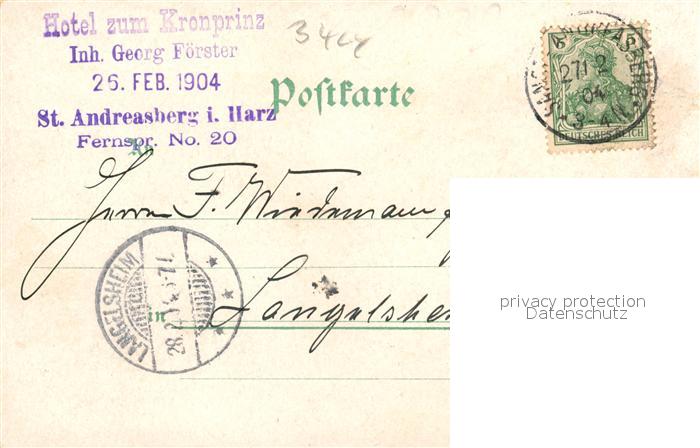 Hotel zum Kronprinz
Inh. Georg Förster
26. FEB. 1904
St. Andreasberg i. Harz
Fernspr. No. 20
3424
Postkarte
An
5
SANCT ANDREASBERG
27/2
04
3-4 N.
DEUTSCHES REICH
Herrn F. Wiedemann
LANGELSHEIM
28.2.
in Langelshei
privacy protection
Datenschutz